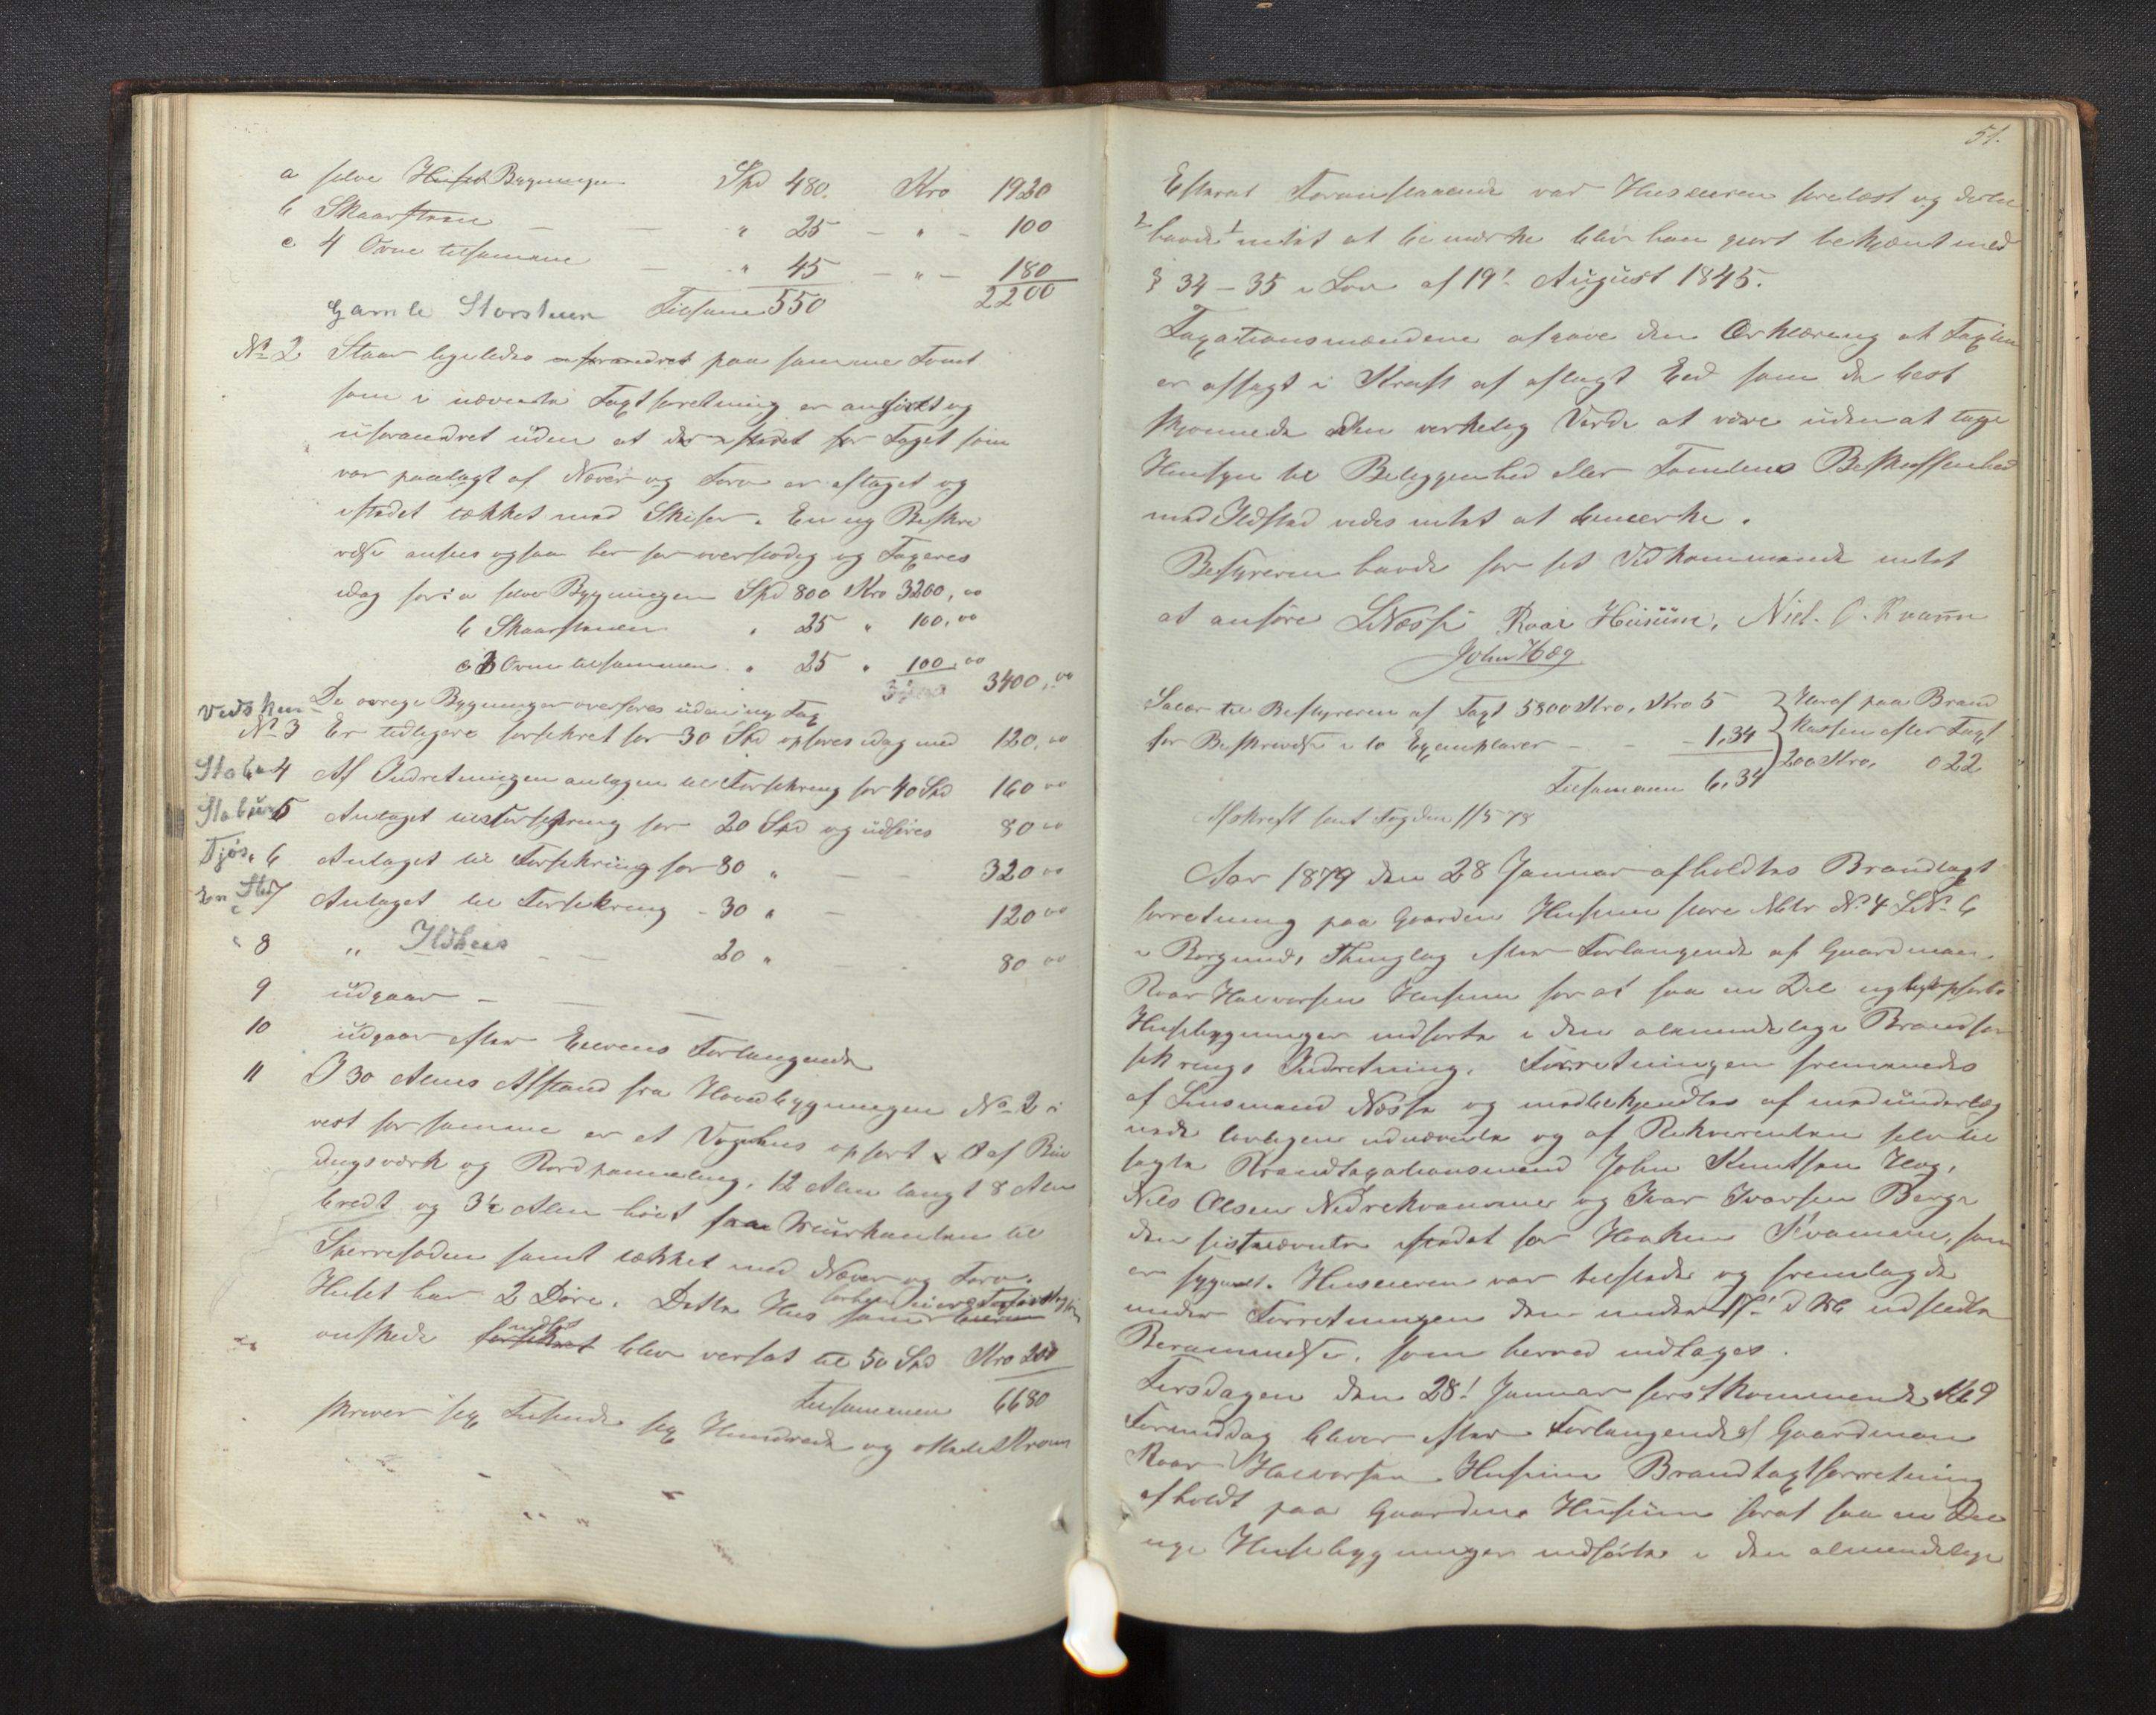 a selve Huset Bygningen Spd 480. Kro 1920
b Skaarsteen — — " 25 — " — 100
c 4 Ovne tilsammen — " 45 — " — 180
Tilsamen 550 2200
Gamle Storstuen
No 2 Staar ligeledes uforandret paa samme Tomt
som i nævnte Taxtforretning er anført og
uforandret uden at istedet for Taget som
var paalagt af Næver og Torv er aftaget og
istedet tækket med Skifer. En ny Beskri
velse ansees ogsaa her for overflødig og Taxeres
idag for: a selve Bygningen Spd 800 Kro 3200,00
b Skaarstenen " 25 " 100,00
c 2 Ovne tilsammen " 25 " 100,00
3400,00
De øvrige Bygninger overføres uden ny Tax
Vedskur No 3 Er tidligere forsikret for 30 Spd opføres idag med 120,00
Stabur 4 Af Indretningen antagen til Forsikring for 40 Spd 160 00
Stabur 5 Antaget til Forsikring for 20 Spd og udføres 80 00
Fjøs 6 Antaget til Forsikring for 80 " — — 320 00
7 Antaget til Forsikring - 30 " — 120 00
" 8 " Ildhus — — 20 " — . 80 00
9 udgaar — — —
10 udgaar efter Eierens Forlangende
11 I 30 Alens Afstand fra Hovedbygningen No 2 i
vest for samme er et Vognhus opført af Bin
dingsværk og Bordpanneling, 12 Alen langt 8 Alen
bredt og 3½ Alen høit fra Muurkanten til
Sperrefoden samt tækket med Næver og Torv.
Huset har 2 Døre. Dette Hus som Eieren
ønskede forsikret blev versat til 50 Spd Kro 200
Tilsammen 6680
skriver sex Tusinde sex Hundrede og otteti Kroner
51.
Efterat Foranstaaende var Huseieren forelæst og dertil
2 havde 1 intet at bemærke blev han gjort bekjendt med
§ 34 – 35 i Lov af 19! August 1845.
Taxationsmændene afgave den Erklæring at Taxten
er afsagt i Kraft af aflagt Eed som de best
skjønnede den verkelig Værdi at være uden at tage
Hensyn til Beliggenhed eller Tomtens Beskaffenhed
med Ildsted vides intet at bemerke.
Bestyreren havde for sit Vedkommende intet
at anføre LNæsse Roar Husum, Niel. O. Kvamn
John Hæg
Salær til Bestyreren af Taxt 5800 Kro, Kro 5 } Heraf paa Brand
for Beskrivelse i to Exemplarer — — - 1,34 } Kassen efter Taxt
200 Kro, 0 22
Tilsammen 6,34
Afskrift sent Fogden 11/5 78
Aar 1879 den 28 Januar afholdtes Brandtaxt
forretning paa Gaarden Husum store Matr No 4 LNo 6
i Borgund, Thinglag efter Forlangende af Gaardman.
Roar Halvorsen Husum for at faa en Del nybygt opførte
Husebygninger indførte i den almindelige Brandfor
sikrings Indretning. Forretningen fremmedes
af Lensmand Næsse og medbekjendtes af medunderteg
nede lovligen udnævnte og af Rekvirenten selv til
sagte Brandtaxationsmænd John Knutsen Hæg,
Nils Olsen Nedrekvamme og Ivar Ivarsen Berge
den sistnævnte istedet for Haaken Kvamme, som
er sygmelt. Huseieren var tilstede og fremlagde
under Forretningen den under d M udstedte
Berammelse, som herved indtages.
Tirsdagen den 28! Januar førstkommende Kl 9
Formiddag bliver efter Forlangende af Gaardman
Roar Halvorsen Husum Brandtaxtforretning
afholdt paa Gaarden Husum forat faa en Del
nye Husebygninger indførte i den almindelige